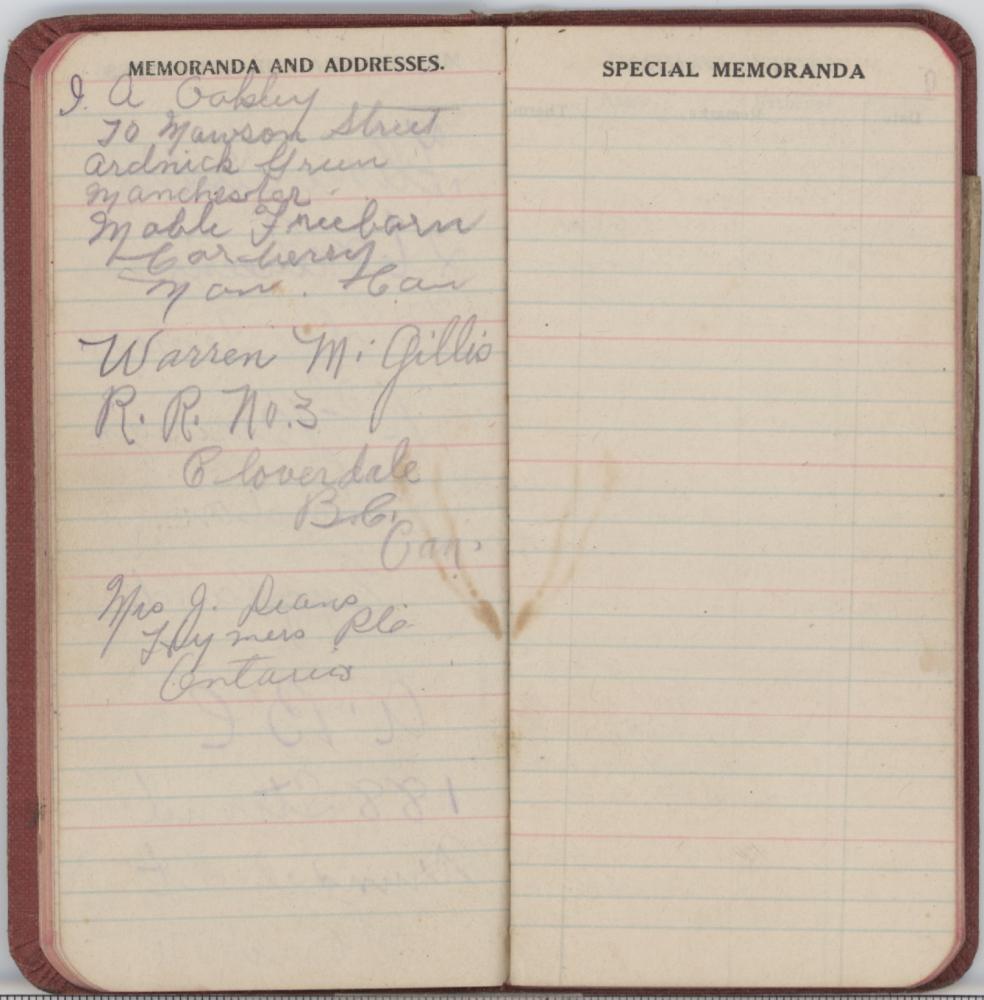 MEMORANDA AND ADDRESSES.
J. A Oakley
70 Mawson Street
Ardnick Green
Manchester
Mable Freeborn
Carberry
Man. Can
Warren M. Gillis
R. R. No. 3
Cloverdale
B.C.
Can.
Mrs J. Deans
Hymers P.O.
Ontario
SPECIAL MEMORANDA